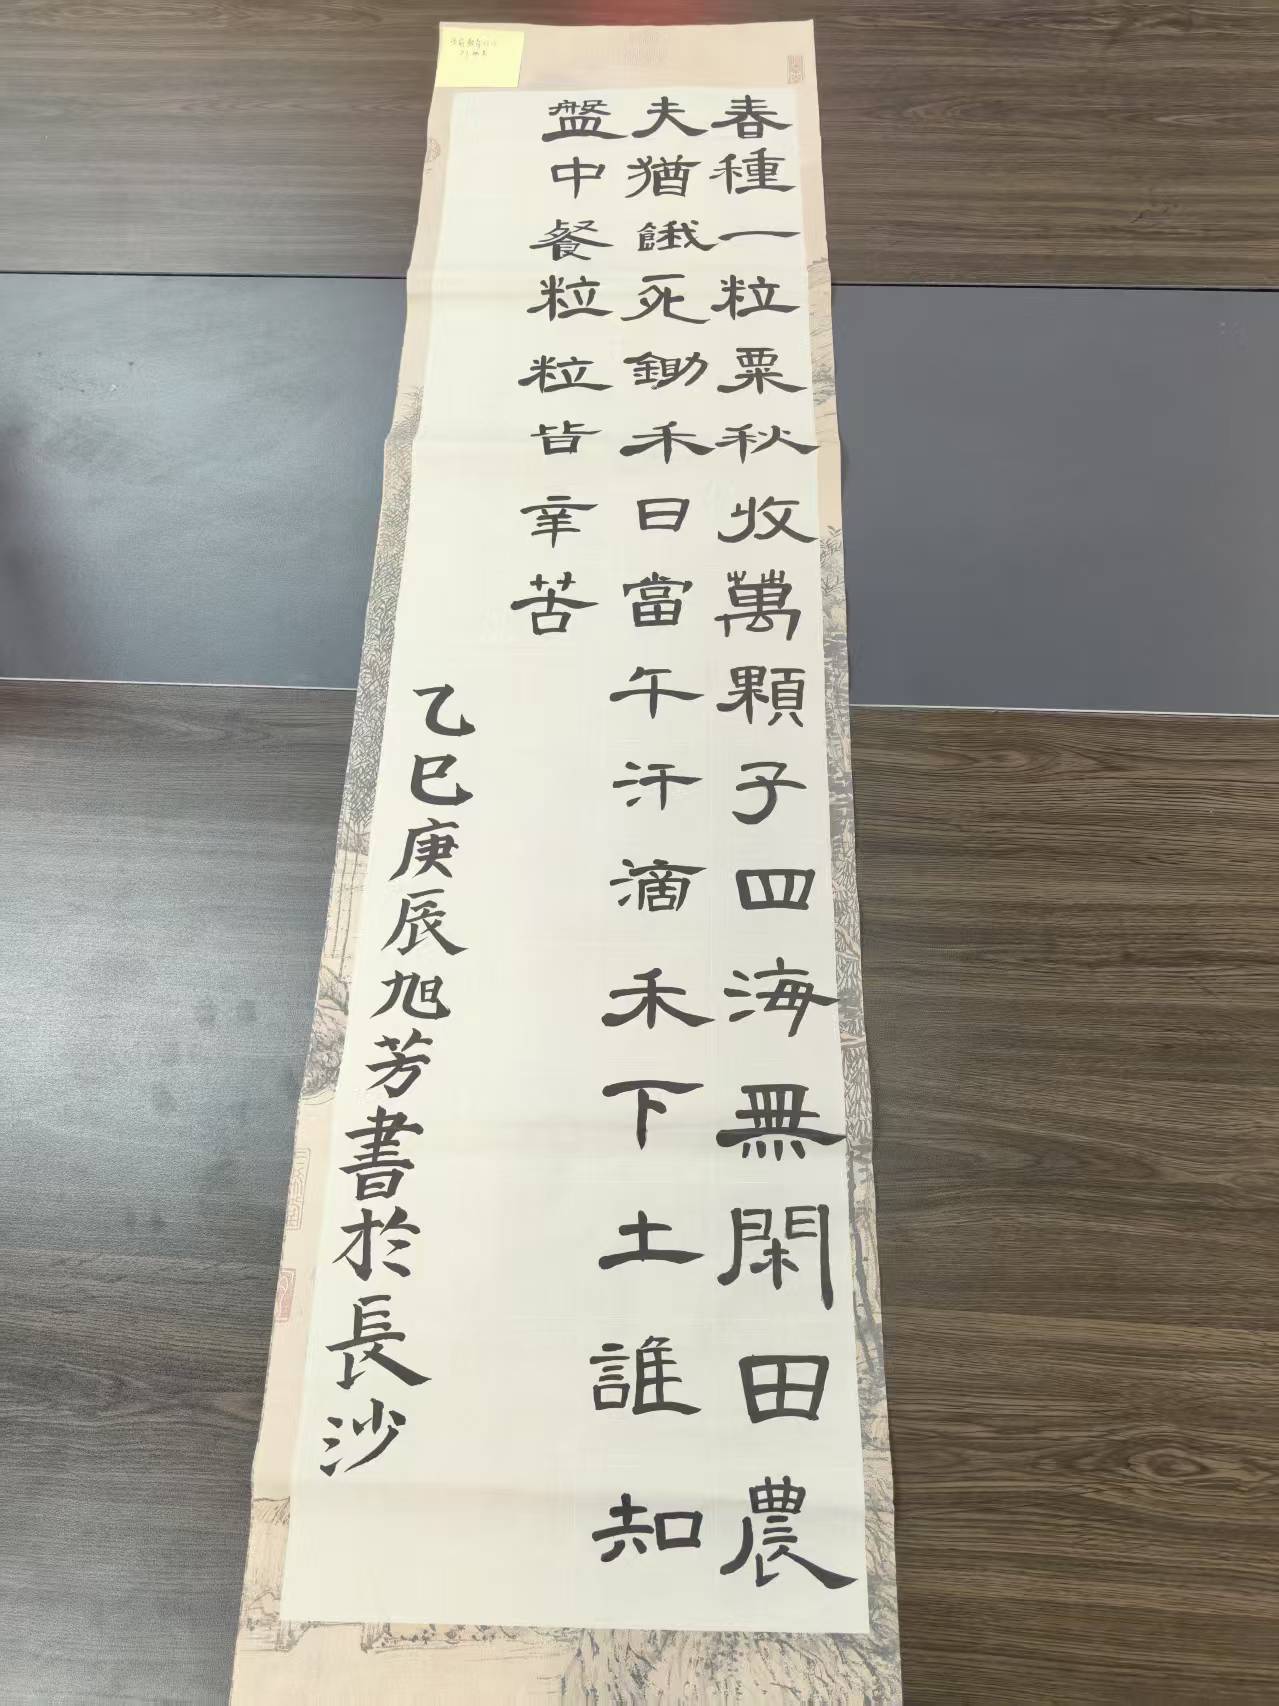 春種一粒粟秋收萬顆子四海無閑田農
夫猶餓死鋤禾日當午汗滴禾下土誰知
盤中餐粒粒皆辛苦
乙巳庚辰旭芳書於長沙